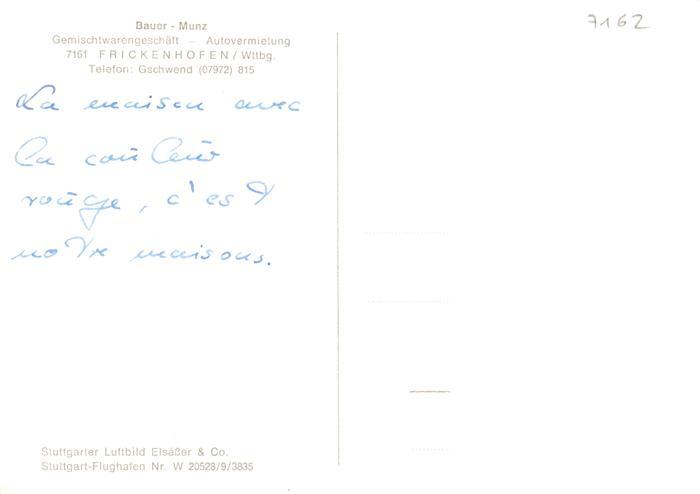 Bauer - Munz
Gemischtwarengeschäft - Autovermietung
7161 FRICKENHOFEN / Wttbg.
Telefon: Gschwend (07972) 815
7162
La maison avec
la couleur
rouge, c'est
notre maisons.
Stuttgarter Luftbild Elsäßer & Co.
Stuttgart-Flughafen Nr. W 20528/9/3835